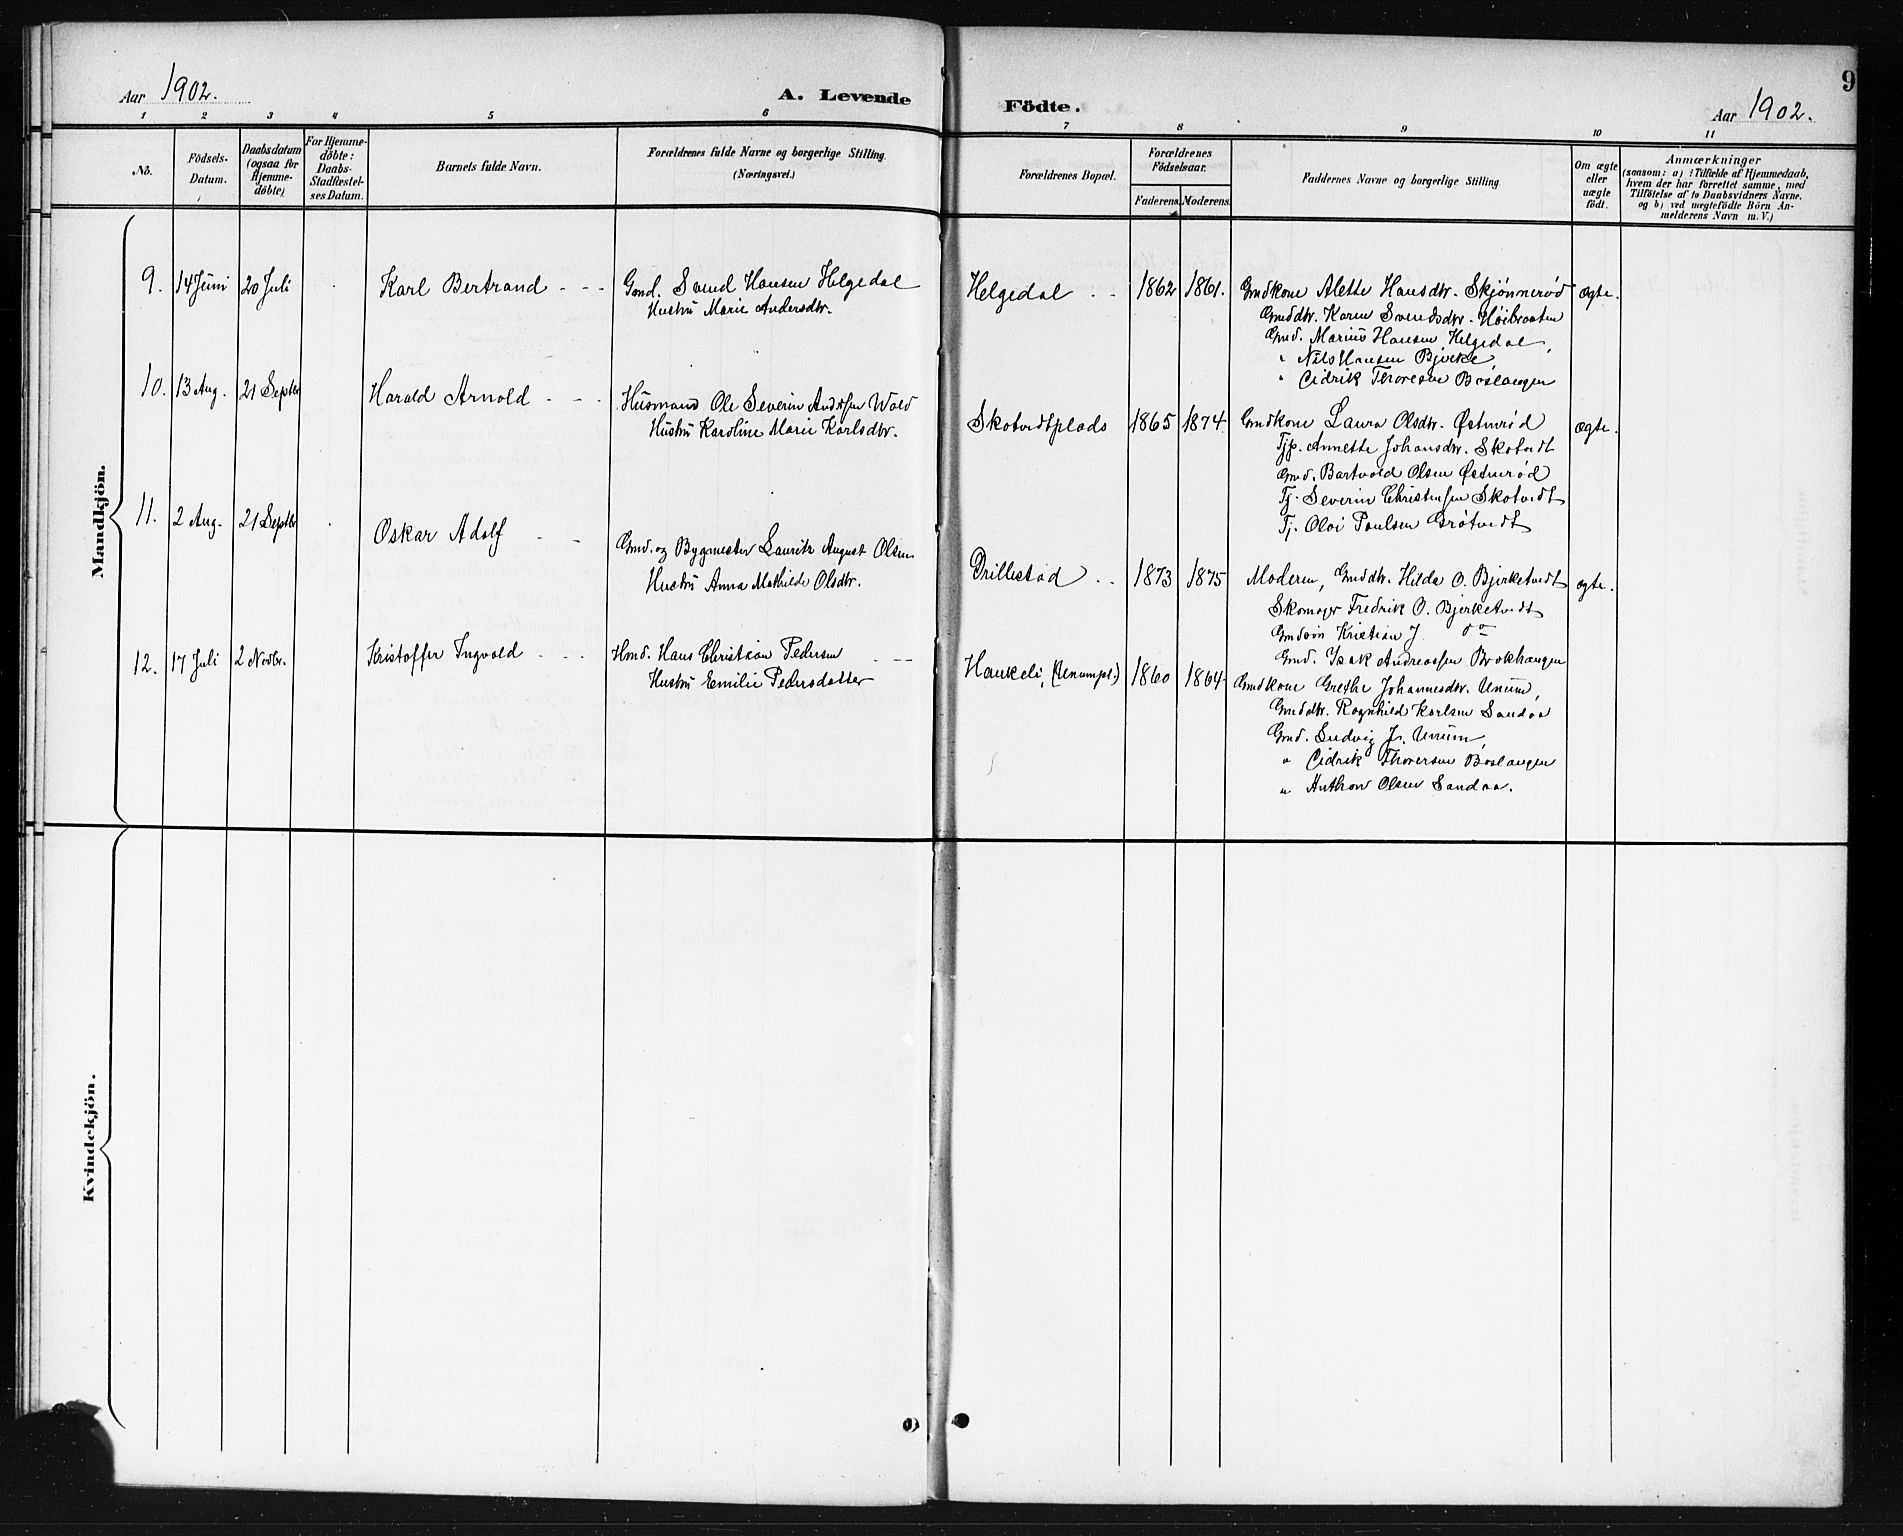 Aar 1902. A. Levende Födte. Aar 1902. 9
1 2 3 4 5 6 7 8 9 10 11
No.
Födsels-
Datum.
Daabsdatum
(ogsaa for
Hjemme-
döbte)
For Hjemme-
döbte:
Daabs-
Stadfæstel-
ses Datum.
Barnets fulde Navn.
Forældrenes fulde Navne og borgerlige Stilling.
(Næringsvei.)
Forældrenes Bopæl.
Forældrenes
Födselsaar.
Faderens. Moderens.
Faddernes Navne og borgerlige Stilling.
Om ægte
eller
uægte
födt.
Anmærkninger
(saasom: a) i Tilfælde af Hjemmedaab,
hvem der har forrettet samme, med
Tilföielse af to Daabsvidners Navne.
og b) ved uægtefödte Börn An-
melderens Navn m. V.)
Mandkjön.
9. 14 Juni 20 Juli Karl Bertrand - - - Gmd. Svend Hansen Helgedal
Hustru Marie Andersdtr.
Helgedal - - 1862 1861. Gmdkone Alette Hansdtr. Skjønnerød ægte.
Gmddtr. Karen Svendsdtr. Høibraaten
Gmd. Marius Hansen Helgedal,
" Nils Hansen Bjerke
" Cidrik Thoresen Boslangen
10. 13 Aug. 21 Septbr Harald Arnold - - - Husmand Ole Severin Andersen Wold
Hustru Karoline Marie Karlsdtr.
Skotvedtplads 1865 1874 Gmdkone Laura Olsdtr. Østnerød ægte.
Tjp. Annette Johansdtr. Skotvedt
Gmd. Bartvold Olsen Østnerød
Tj. Severin Christensen Skotvedt
Tj. Olvi Paulsen Grøtvedt
11. 2 Aug. 21 Septbr Oskar Adolf - - Gmd. og Bygmester Lauritz August Olsen
Hustru Anna Mathilde Olsdtr.
Drillestad - - 1873 1875 Moderen, Gmddtr. Hilda O. Bjerketvedt ægte.
Skomager Fredrik O. Bjerketvedt
Gmdsøn Kristian J. do
Gmd. Isak Andreassen Brokhangen
12. 17 Juli 2 Novbr. Kristoffer Ingvald - - - Hmd. Hans Christian Pedersen - - -
Hustru Emilie Pedersdatter
Haukeli, (Unumpl.) 1860 1864 Gmdkone Grethe Johannesdtr. Unum,
Gmddtr. Ragnhild Karlsen Sandaa
Gmd. Ludvig Jr. Unum,
" Cidrik Thoresen Boslangen
" Anthon Olsen Sandaa.
Kvindekjön.